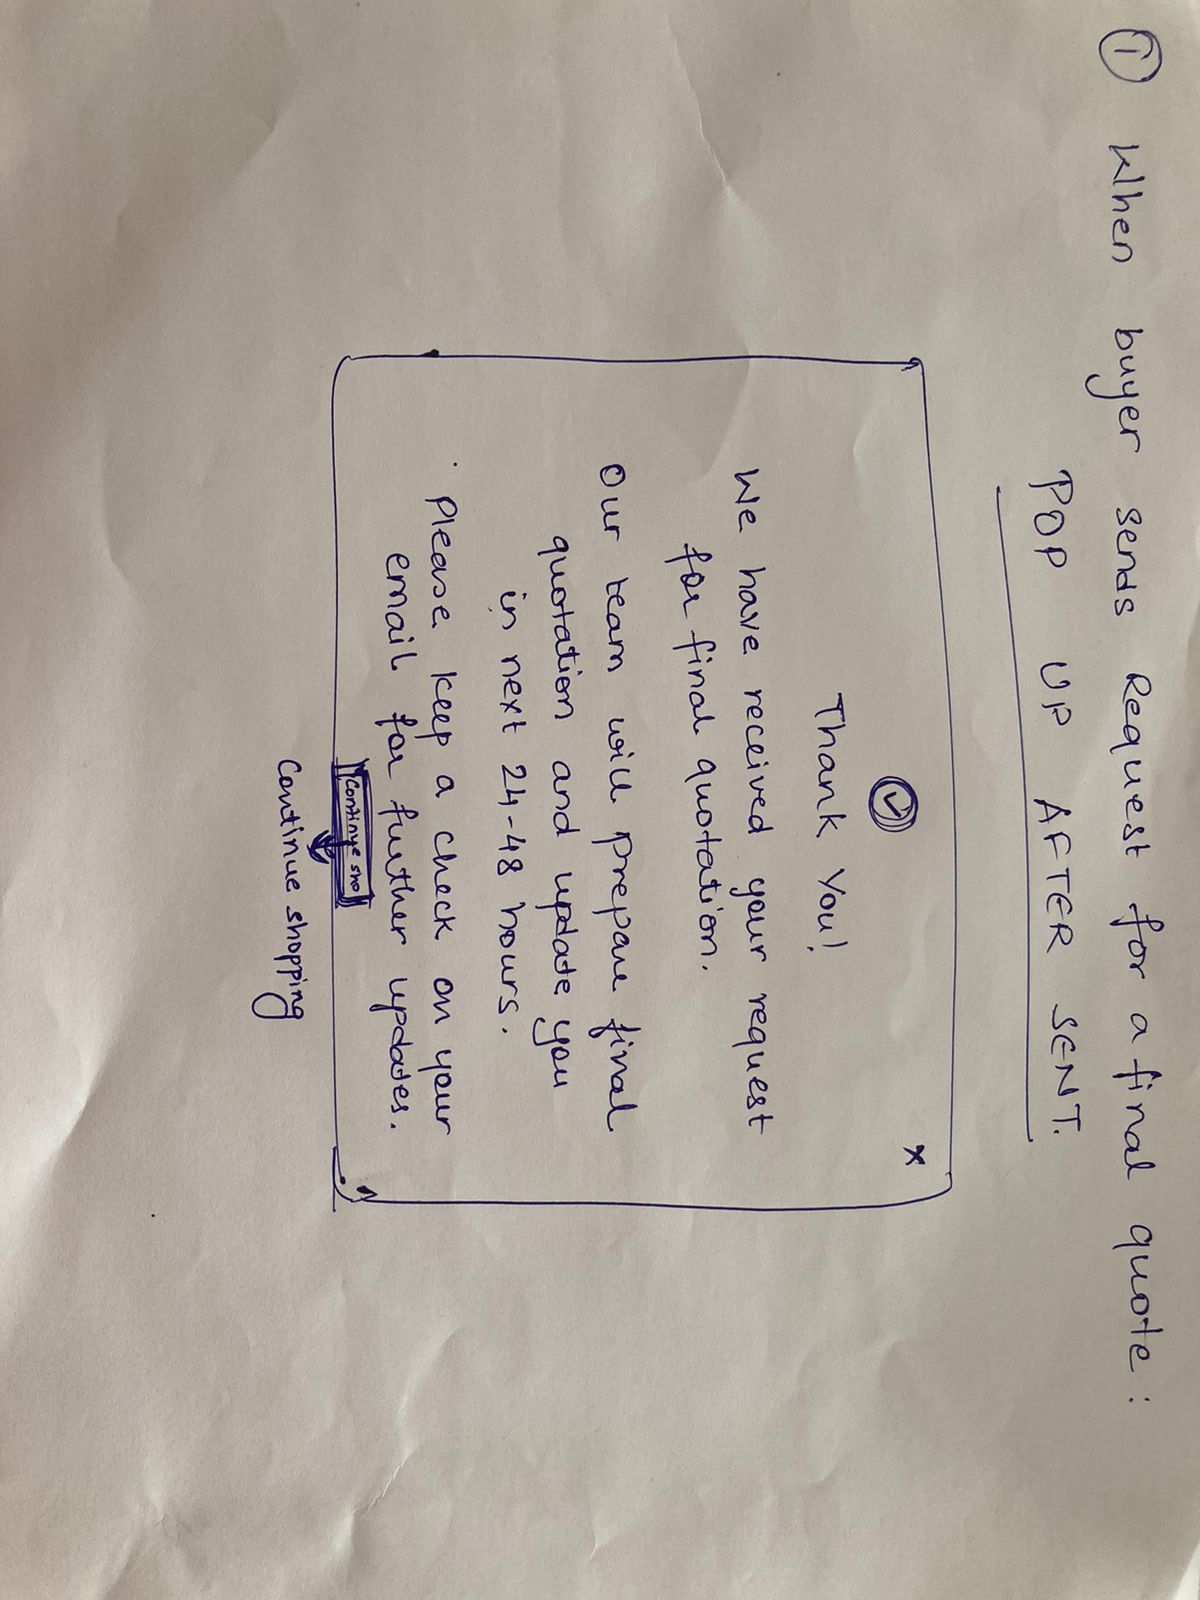 ① When buyer sends Request for a final quote :
POP UP AFTER SENT.
x
Thank You!
We have received your request
for final quotation.
Our team will prepare final
quotation and update you
in next 24-48 hours.
. Please keep a check on your
email for further updates.
Continue sho
Continue shopping